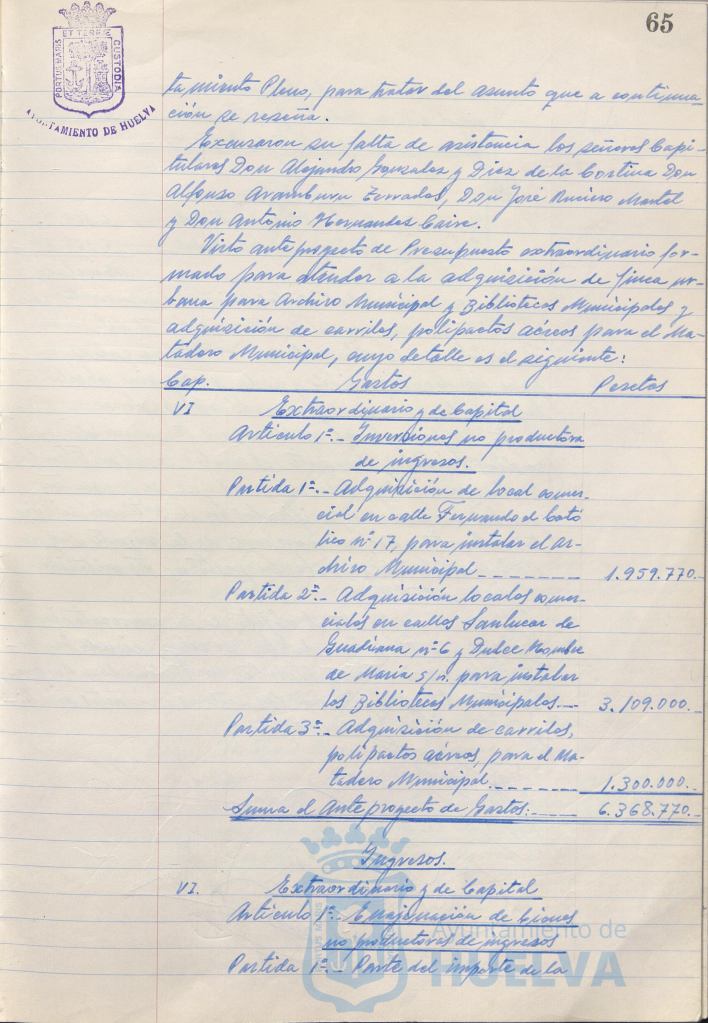 65
PORTUS MARIS ET TERRE CUSTODIA
AYUNTAMIENTO DE HUELVA
tamiento Pleno, para tratar del asunto que a continua-
ción se reseña.
Excusaron su falta de asistencia los señores Capi-
tulares Don Alejandro Gonzalez y Diez de la Cortina Don
Alfonso Aramburu Terrades, Don José Romero Martel
y Don Antonio Hernandez Caire.
Visto anteproyecto de Presupuesto extraordinario for-
mado para atender a la adquisición de finca ur-
bana para Archivo Municipal y Bibliotecas Municipales y
adquisición de carriles, polipactos aéreos para el Ma-
tadero Municipal, cuyo detalle es el siguiente:
Cap. Gastos Pesetas
VI Extraordinario y de Capital
Articulo 1º.- Inversiones no productora
de ingresos.
Partida 1ª.- Adquisición de local comer-
cial en calle Fernando el Cató
lico nº 17, para instalar el Ar-
chivo Municipal 1.959.770.-
Partida 2ª.- Adquisición locales comer-
ciales en calles Sanlucar de
Guadiana nº 6 y Dulce Nombre
de Maria s/n. para instalar
las Bibliotecas Municipales.- 3.109.000.-
Partida 3ª.- Adquisición de carriles,
polipactos aéreos, para el Ma-
tadero Municipal 1.300.000.-
Suma el Anteproyecto de Gastos: 6.368.770.-
Ingresos.
VI. Extraordinario y de Capital
Articulo 1º.- Enajenación de bienes
no productoras de ingresos
Partida 1ª.- Parte del importe de la
Ayuntamiento de
HUELVA